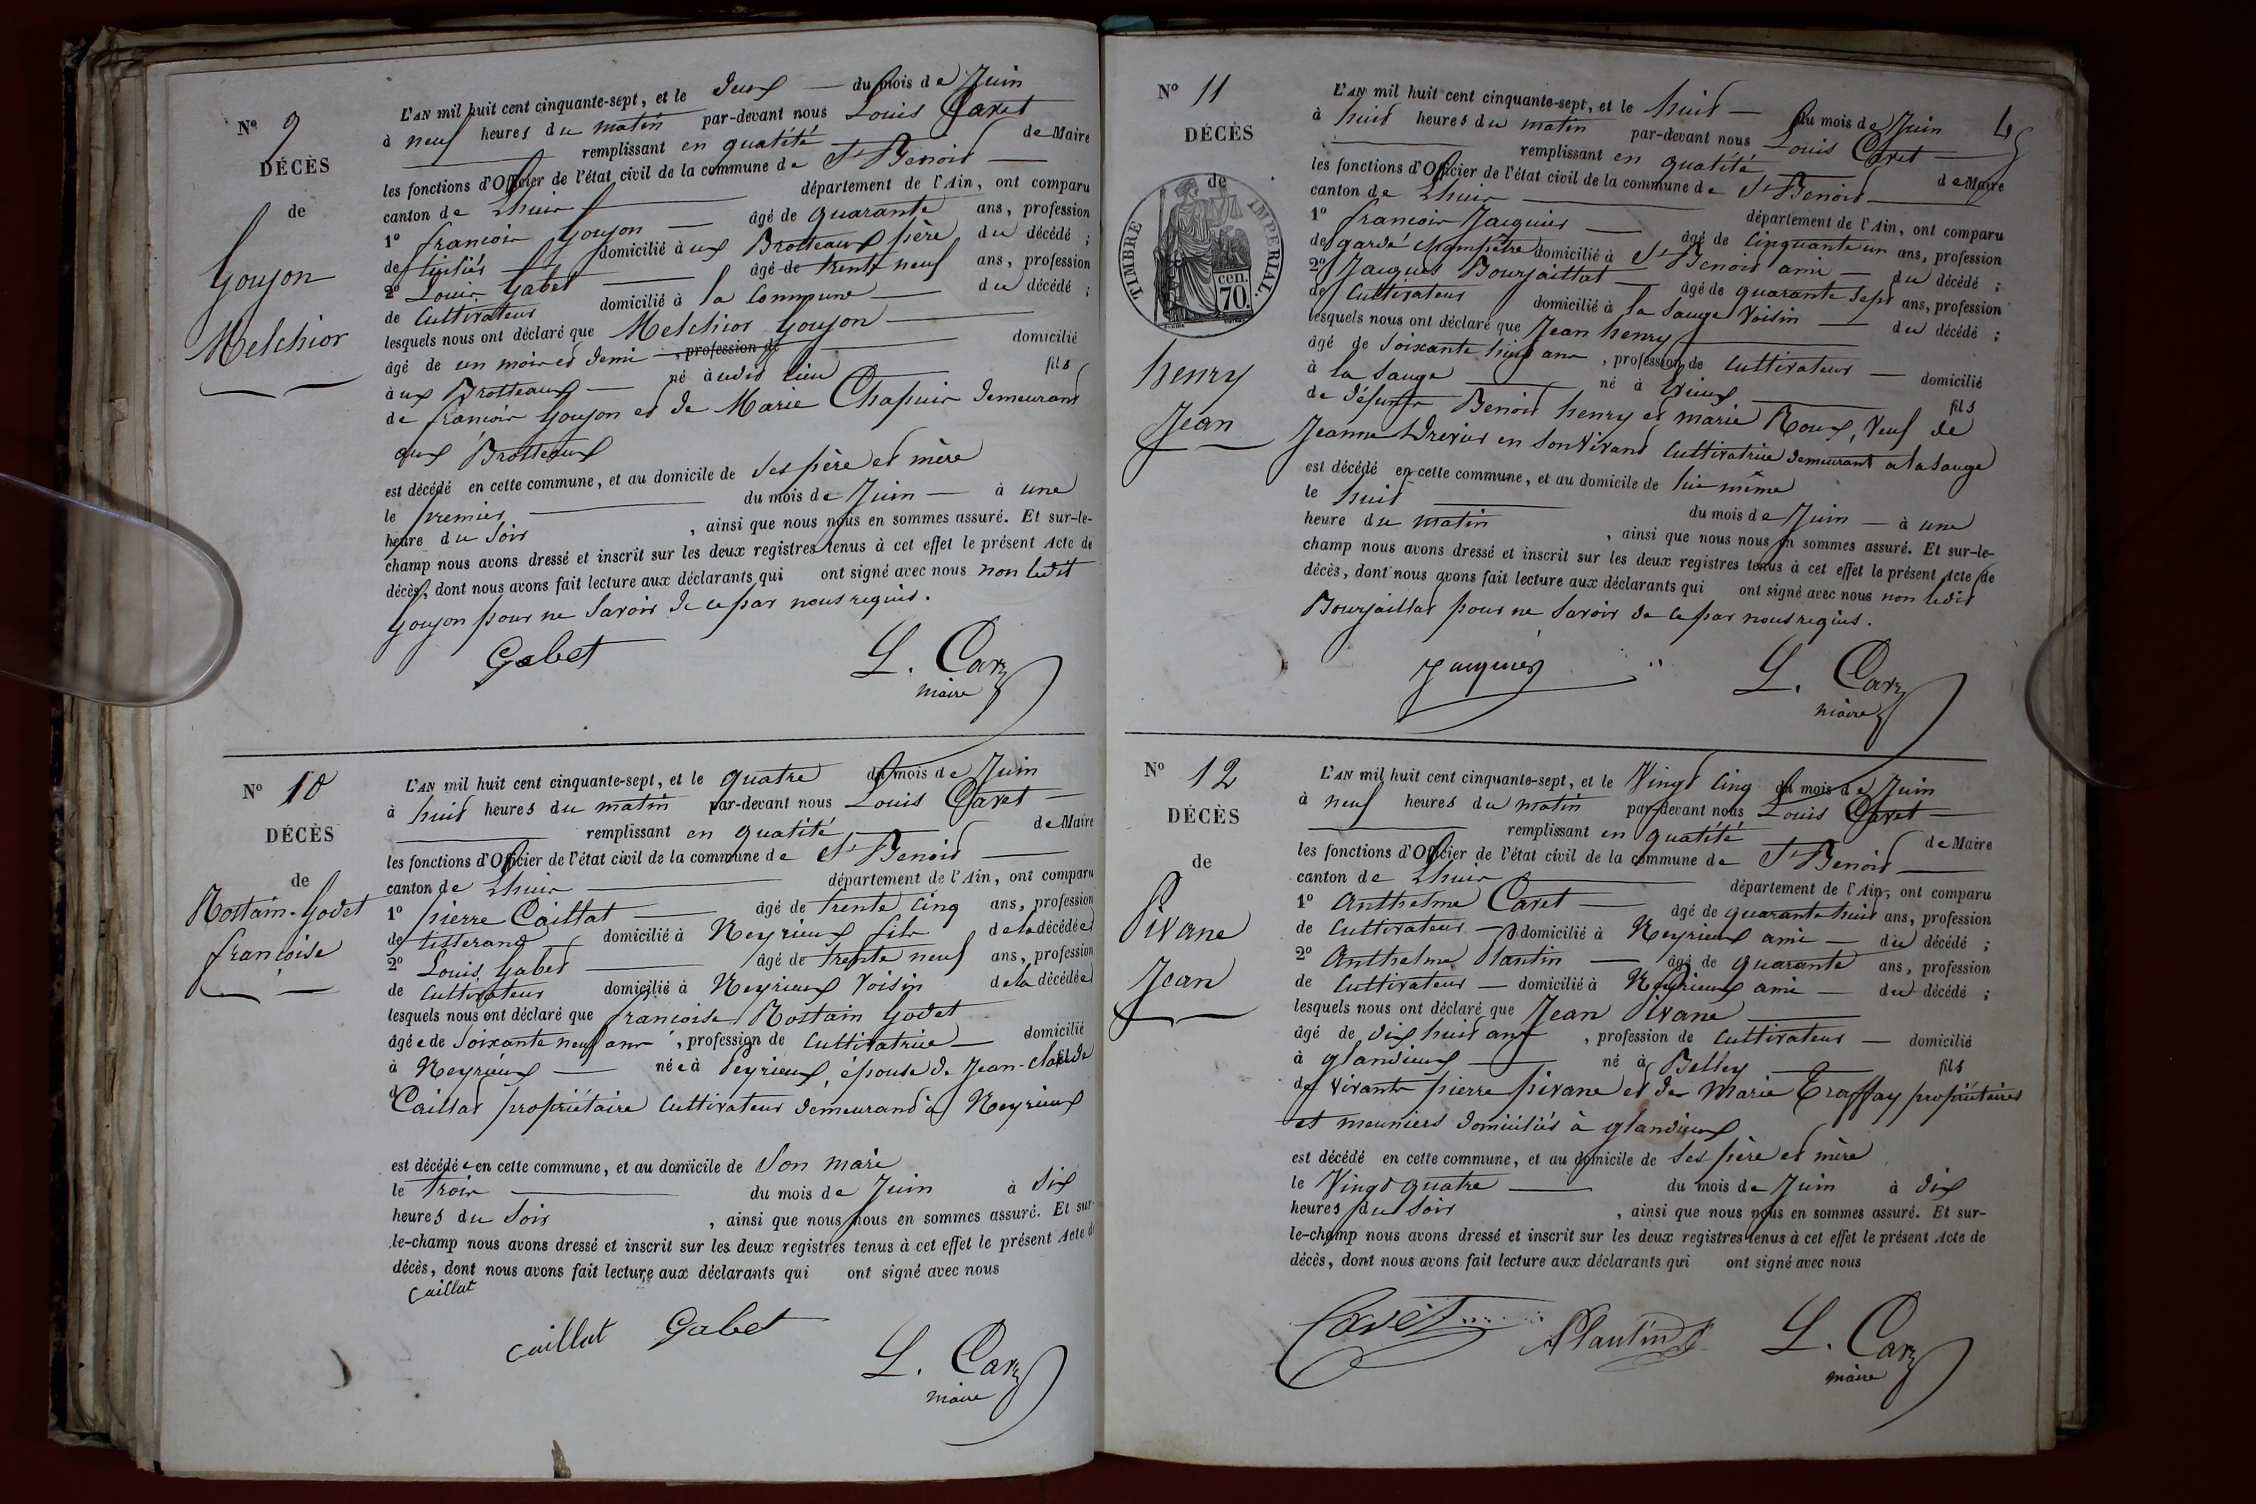 N° 9
DÉCÈS
de
Goujon
Melchior
L'AN mil huit cent cinquante-sept, et le deux du mois de Juin
à neuf heures du matin par-devant nous Louis Cavet
remplissant en qualité de Maire
les fonctions d'Officier de l'état civil de la commune de St Benoit
canton de Lhuis département de l'Ain, ont comparu
1° francois Goujon âgé de quarante ans, profession
de domicilié à ux Brotteaux père du décédé ;
2° Louis Gabet âgé de trente neuf ans, profession
de Cultivateur domicilié à la Commune du décédé ;
lesquels nous ont déclaré que Melchior Goujon
âgé de un mois et demi , profession de domicilié
à ux Brotteaux né à udit lieu fils
de francois Goujon et de Marie Chapuis demeurant
aux Brotteaux
est décédé en cette commune, et au domicile de ses père et mère
le premier du mois de Juin à une
heure du soir , ainsi que nous nous en sommes assuré. Et sur-le-
champ nous avons dressé et inscrit sur les deux registres tenus à cet effet le présent Acte de
décès, dont nous avons fait lecture aux déclarants qui ont signé avec nous non ledit
Goujon pour ne savoir de ce par nous requis.
Gabet L. Cavet
maire
N° 10
DÉCÈS
de
Rostain-Godet
francoise
L'AN mil huit cent cinquante-sept, et le quatre du mois de Juin
à huit heures du matin par-devant nous Louis Cavet
remplissant en qualité de Maire
les fonctions d'Officier de l'état civil de la commune de St Benoit
canton de Lhuis département de l'Ain, ont comparu
1° pierre Caillat âgé de trente cinq ans, profession
de tisserand domicilié à Neyrieux fils de la décédée
2° Louis Gabet âgé de trente neuf ans, profession
de Cultivateur domicilié à Neyrieux Voisin de la décédée
lesquels nous ont déclaré que francoise Rostain Godet
âgée de soixante neuf ans , profession de Cultivatrice domicilié
à Neyrieux née à Peyrieux, épouse de Jean-Claude
Caillat propriétaire Cultivateur demeurant à Neyrieux
est décédée en cette commune, et au domicile de son mari
le trois du mois de Juin à dix
heures du soir , ainsi que nous nous en sommes assuré. Et sur-
le-champ nous avons dressé et inscrit sur les deux registres tenus à cet effet le présent Acte de
décès, dont nous avons fait lecture aux déclarants qui ont signé avec nous
Caillat
Caillat Gabet L. Cavet
maire
45
N° 11
DÉCÈS
de
TIMBRE IMPERIAL.
70. cen.
henry
Jean
L'AN mil huit cent cinquante-sept, et le huit du mois de Juin
à huit heures du matin par-devant nous Louis Cavet
remplissant en qualité de Maire
les fonctions d'Officier de l'état civil de la commune de St Benoit
canton de Lhuis département de l'Ain, ont comparu
1° francois Jacquier âgé de cinquante un ans, profession
de garde Champêtre domicilié à St Benoit ami du décédé ;
2° Jacques Bourjaillat âgé de quarante sept ans, profession
de Cultivateur domicilié à la Sauge Voisin du décédé ;
lesquels nous ont déclaré que Jean henry
âgé de soixante huit ans , profession de Cultivateur domicilié
à la Sauge né à fils
de défunts Benoit henry et marie Roux, Veuf de
Jeanne Drevier en son Vivant Cultivatrice demeurant a la Sauge
est décédé en cette commune, et au domicile de lui même
le huit du mois de Juin à une
heure du matin , ainsi que nous nous en sommes assuré. Et sur-le-
champ nous avons dressé et inscrit sur les deux registres tenus à cet effet le présent Acte de
décès, dont nous avons fait lecture aux déclarants qui ont signé avec nous non ledit
Bourjaillat pour ne savoir de ce par nous requis.
Jacquier L. Cavet
maire
N° 12
DÉCÈS
de
Pivane
Jean
L'AN mil huit cent cinquante-sept, et le Vingt cinq du mois de Juin
à neuf heures du matin par-devant nous Louis Cavet
remplissant en qualité de Maire
les fonctions d'Officier de l'état civil de la commune de St Benoit
canton de Lhuis département de l'Ain, ont comparu
1° Anthelme Cavet âgé de quarante huit ans, profession
de Cultivateur domicilié à Neyrieux ami du décédé ;
2° Anthelme Plantin âgé de quarante ans, profession
de Cultivateur domicilié à Neyrieux ami du décédé ;
lesquels nous ont déclaré que Jean Pivane
âgé de dix huit ans , profession de Cultivateur domicilié
à glandieux né à Belley fils
de Vivants pierre pivane et de Marie Traffay propriétaires
et meuniers domiciliés à glandieux
est décédé en cette commune, et au domicile de ses père et mère
le Vingt quatre du mois de Juin à dix
heures du soir , ainsi que nous nous en sommes assuré. Et sur-
le-champ nous avons dressé et inscrit sur les deux registres tenus à cet effet le présent Acte de
décès, dont nous avons fait lecture aux déclarants qui ont signé avec nous
Cavet A Plantin L. Cavet
maire